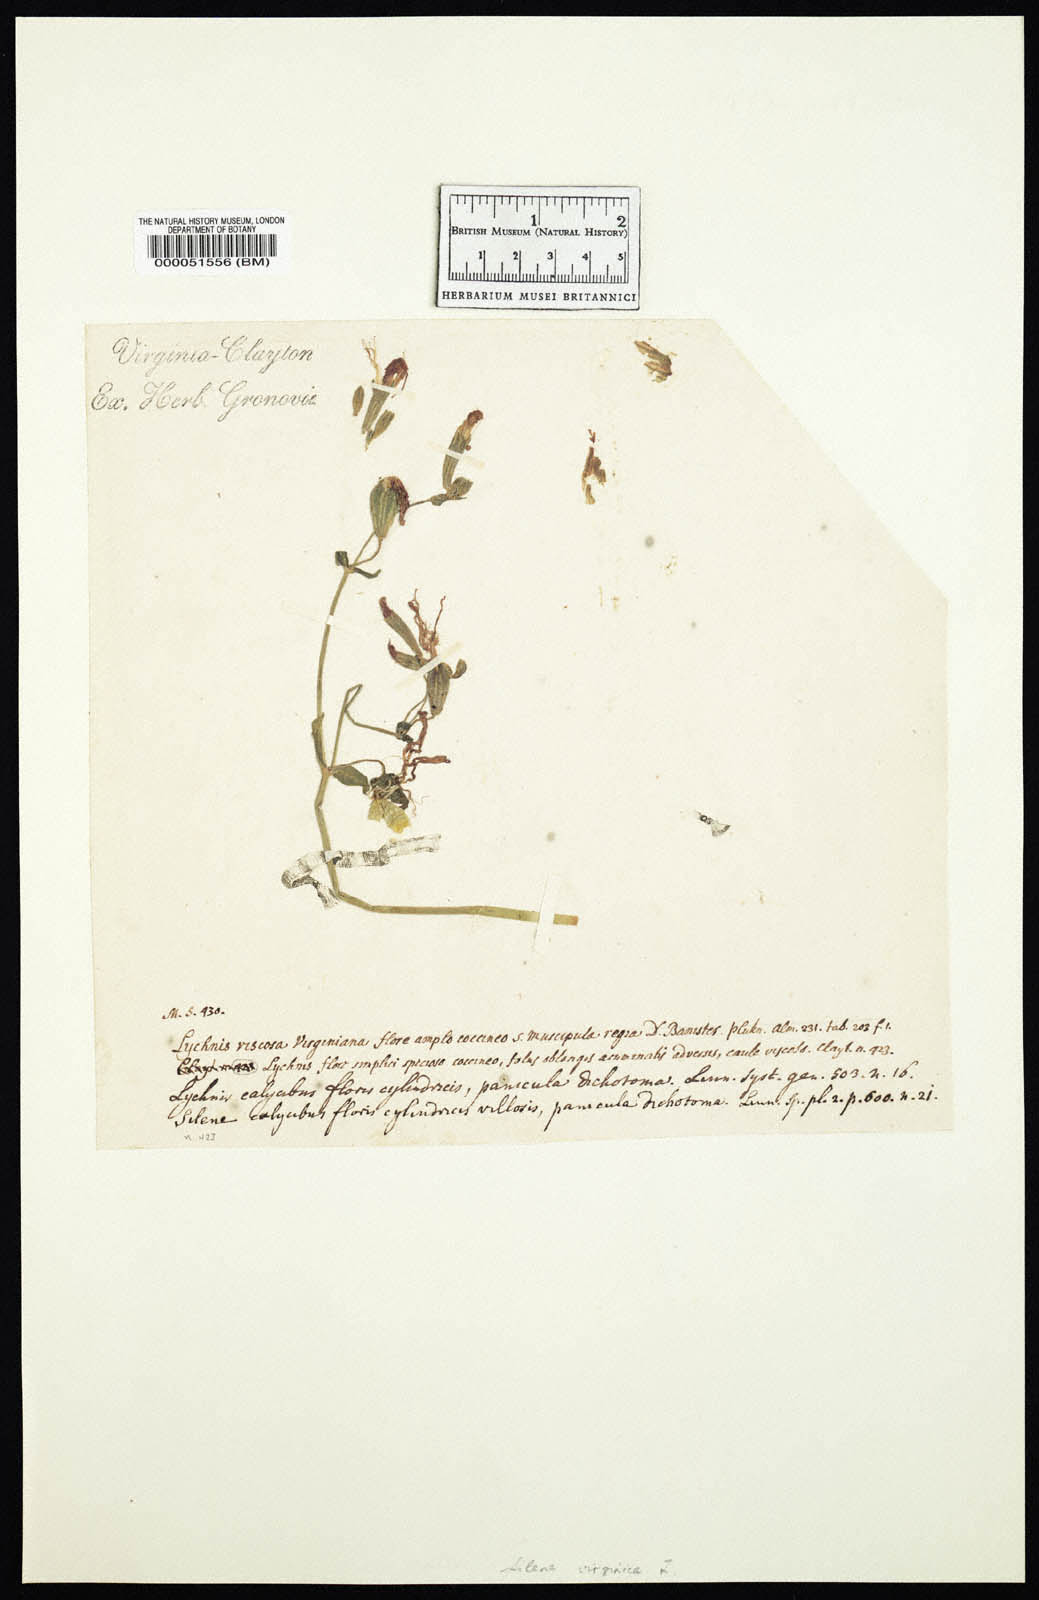 THE NATURAL HISTORY MUSEUM, LONDON
DEPARTMENT OF BOTANY
000051556 (BM)
1 2
BRITISH MUSEUM (NATURAL HISTORY)
1 2 3 4 5
HERBARIUM MUSEI BRITANNICI
Virginia-Clayton
Ex. Herb. Gronovii
M. S. 430.
Lychnis viscosa Virginiana flore amplo coccineo s. Muscipula regia D. Banister. Plukn. Alm. 231. tab. 203 f. 1.
Lychnis flore simplici specioso coccineo, foliis oblongis acuminatis adversis, caule viscoso. Clayt. n. 423.
Lychnis calycibus floris cylindricis, panicula dichotoma. Linn. Syst. gen. 503. n. 16.
Silene calycibus floris cylindricis villosis, panicula dichotoma. Linn. Sp. pl. 2. p. 600. n. 21.
n. 423
Silene virginica L.